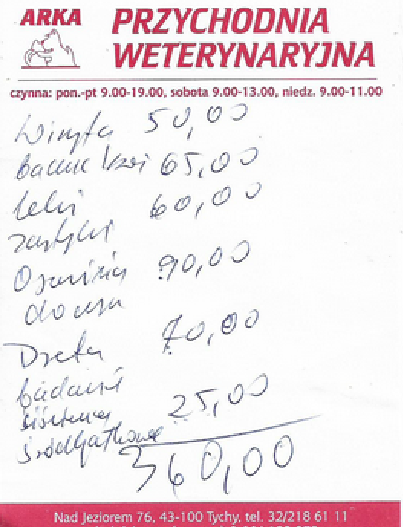 ARKA
PRZYCHODNIA
WETERYNARYJNA
czynna: pon.-pt 9.00-19.00, sobota 9.00-13.00, niedz. 9.00-11.00
Wizyta 50,00
badanie krwi 65,00
leki 60,00
zastrzyki
90,00
70,00
badanie
ciśnienia 25,00
śródgałkowe
360,00
Nad Jeziorem 76, 43-100 Tychy, tel. 32/218 61 11